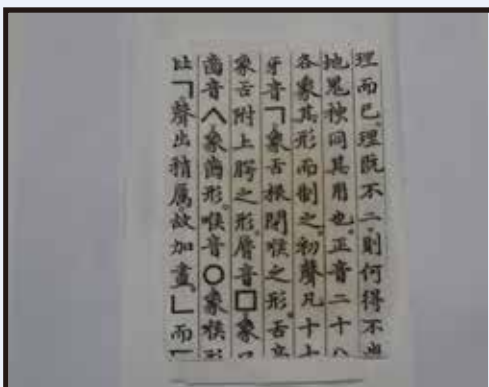 理而已。理旣不二。則何得不
地鬼神同其用也。正音二十八
各象其形而制之。初聲凡十
牙音ㄱ象舌根閉喉之形。舌
象舌附上腭之形。脣音ㅁ象
齒音ㅅ象齒形。喉音ㅇ象喉形
比ㄱ聲出稍厲故加畫。ㄴ而